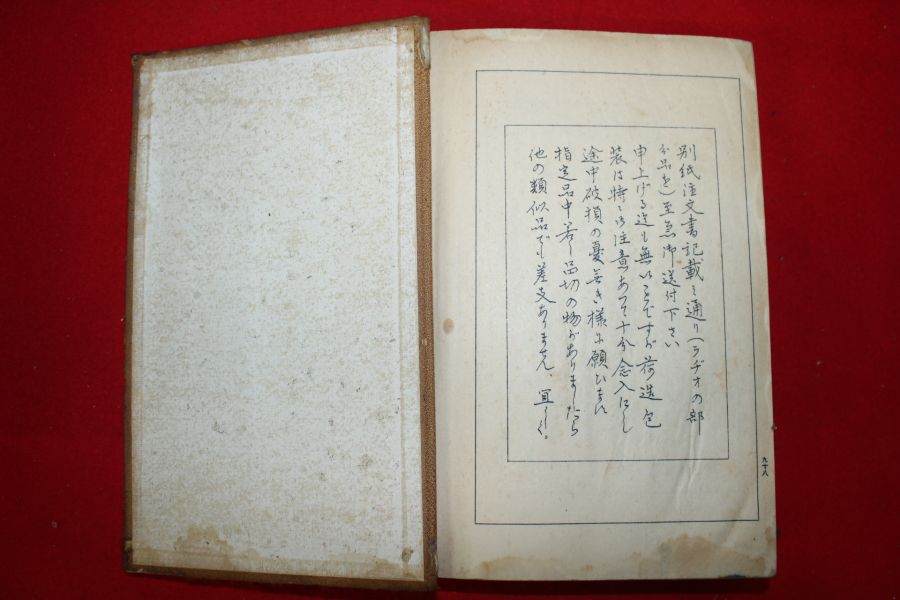 別紙注文書記載之通り（ラヂオの部
分品を）至急御送付下さい
申上げる迄も無いことですが荷造包
装は特に御注意あつて十分念入にし
途中破損の憂無き様に願ひます
指定品中若し品切の物がありましたら
他の類似品でも差支ありません、宜しく。
九十八